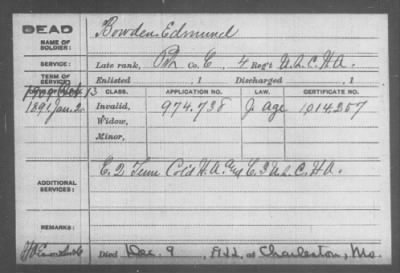 DEAD
NAME OF SOLDIER:
Bowden Edmund
SERVICE:
Late rank, Pvt Co. E, 4 Reg't U.S.C.H.A.
TERM OF SERVICE:
Enlisted , 1 Discharged , 1
CLASS. APPLICATION NO. LAW. CERTIFICATE NO.
1891 Jan. 2 Invalid, 974.738 age 1.014.257
Widow,
Minor,
ADDITIONAL SERVICES:
C. 2 Tenn Cold H.A. and C. 3 U.S.C.H.A.
REMARKS:
Died Dec. 9, at Charleston, Mo.